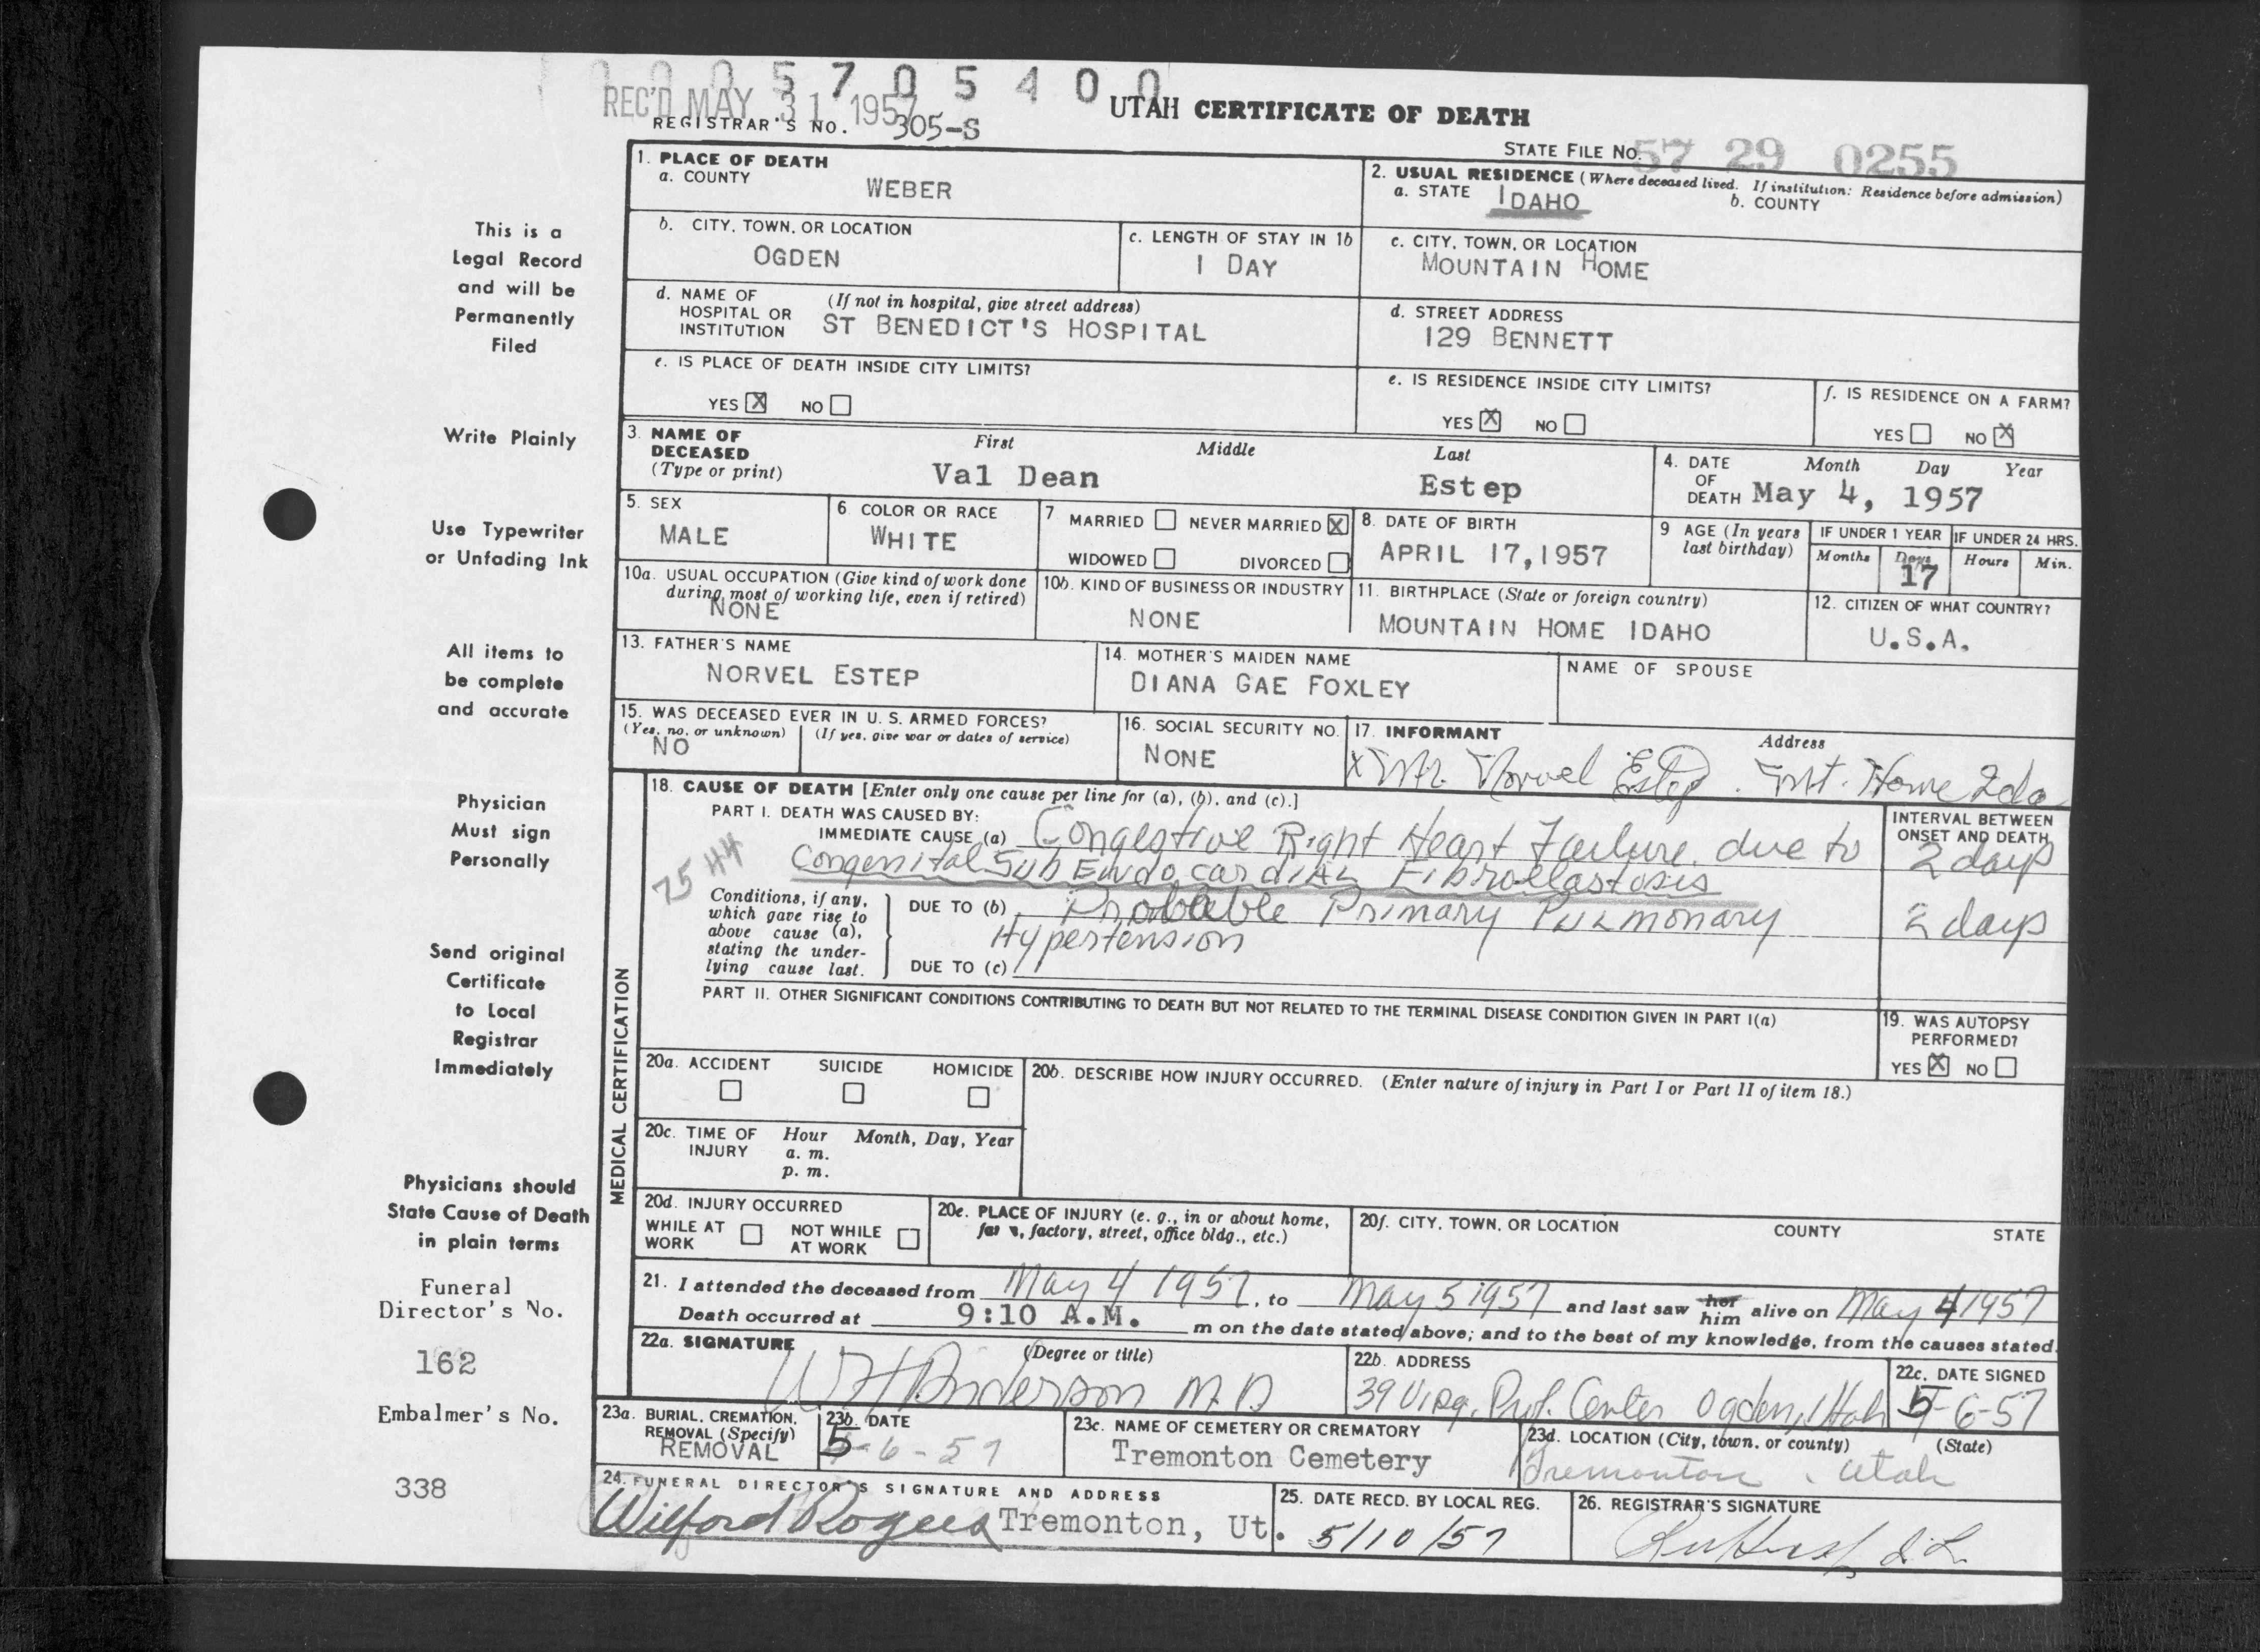 0 0 0 5 7 0 5 4 0 0
REC'D MAY 31 1957
UTAH CERTIFICATE OF DEATH
REGISTRAR'S NO. 305-S
STATE FILE NO. 57 29 0255
1. PLACE OF DEATH
a. COUNTY
WEBER
2. USUAL RESIDENCE (Where deceased lived. If institution: Residence before admission)
a. STATE IDAHO b. COUNTY
b. CITY, TOWN, OR LOCATION
OGDEN
c. LENGTH OF STAY IN 1b
1 DAY
c. CITY, TOWN, OR LOCATION
MOUNTAIN HOME
d. NAME OF HOSPITAL OR INSTITUTION
(If not in hospital, give street address)
ST BENEDICT'S HOSPITAL
d. STREET ADDRESS
129 BENNETT
e. IS PLACE OF DEATH INSIDE CITY LIMITS?
YES X NO
e. IS RESIDENCE INSIDE CITY LIMITS?
YES X NO
f. IS RESIDENCE ON A FARM?
YES NO X
3. NAME OF DECEASED
(Type or print)
First Middle Last
Val Dean Estep
4. DATE OF DEATH
Month Day Year
May 4, 1957
5. SEX
MALE
6. COLOR OR RACE
WHITE
7 MARRIED NEVER MARRIED X
WIDOWED DIVORCED
8. DATE OF BIRTH
APRIL 17,1957
9 AGE (In years last birthday)
IF UNDER 1 YEAR
Months Days
17
IF UNDER 24 HRS.
Hours Min.
10a. USUAL OCCUPATION (Give kind of work done during most of working life, even if retired)
NONE
10b. KIND OF BUSINESS OR INDUSTRY
NONE
11. BIRTHPLACE (State or foreign country)
MOUNTAIN HOME IDAHO
12. CITIZEN OF WHAT COUNTRY?
U.S.A.
13. FATHER'S NAME
NORVEL ESTEP
14. MOTHER'S MAIDEN NAME
DIANA GAE FOXLEY
NAME OF SPOUSE
15. WAS DECEASED EVER IN U. S. ARMED FORCES?
(Yes, no, or unknown) (If yes, give war or dates of service)
NO
16. SOCIAL SECURITY NO.
NONE
17. INFORMANT Address
x Mr. Norvel Estep. Mt. Home Ida
MEDICAL CERTIFICATION
18. CAUSE OF DEATH [Enter only one cause per line for (a), (b), and (c).]
PART I. DEATH WAS CAUSED BY:
IMMEDIATE CAUSE (a) Congestive Right Heart Failure due to
Congenital Sub Endocardial Fibroelastosis
7544
INTERVAL BETWEEN ONSET AND DEATH
2 days
Conditions, if any, which gave rise to above cause (a), stating the underlying cause last.
DUE TO (b) Probable Primary Pulmonary
Hypertension
2 days
DUE TO (c)
PART II. OTHER SIGNIFICANT CONDITIONS CONTRIBUTING TO DEATH BUT NOT RELATED TO THE TERMINAL DISEASE CONDITION GIVEN IN PART I(a)
19. WAS AUTOPSY PERFORMED?
YES X NO
20a. ACCIDENT SUICIDE HOMICIDE
20b. DESCRIBE HOW INJURY OCCURRED. (Enter nature of injury in Part I or Part II of item 18.)
20c. TIME OF INJURY
Hour Month, Day, Year
a. m.
p. m.
20d. INJURY OCCURRED
WHILE AT WORK NOT WHILE AT WORK
20e. PLACE OF INJURY (e. g., in or about home, farm, factory, street, office bldg., etc.)
20f. CITY, TOWN, OR LOCATION COUNTY STATE
21. I attended the deceased from May 4 1957, to May 5 1957 and last saw her him alive on May 4 1957
Death occurred at 9:10 A.M. m on the date stated above; and to the best of my knowledge, from the causes stated.
22a. SIGNATURE (Degree or title)
W H Anderson M.D
22b. ADDRESS
39 Prof. Center Ogden, Utah
22c. DATE SIGNED
5-6-57
23a. BURIAL, CREMATION, REMOVAL (Specify)
REMOVAL
23b. DATE
5-6-57
23c. NAME OF CEMETERY OR CREMATORY
Tremonton Cemetery
23d. LOCATION (City, town, or county) (State)
Tremonton, Utah
24. FUNERAL DIRECTOR'S SIGNATURE AND ADDRESS
Wilford Rogers Tremonton, Ut.
25. DATE RECD. BY LOCAL REG.
5/10/57
26. REGISTRAR'S SIGNATURE
This is a
Legal Record
and will be
Permanently
Filed
Write Plainly
Use Typewriter
or Unfading Ink
All items to
be complete
and accurate
Physician
Must sign
Personally
Send original
Certificate
to Local
Registrar
Immediately
Physicians should
State Cause of Death
in plain terms
Funeral
Director's No.
162
Embalmer's No.
338